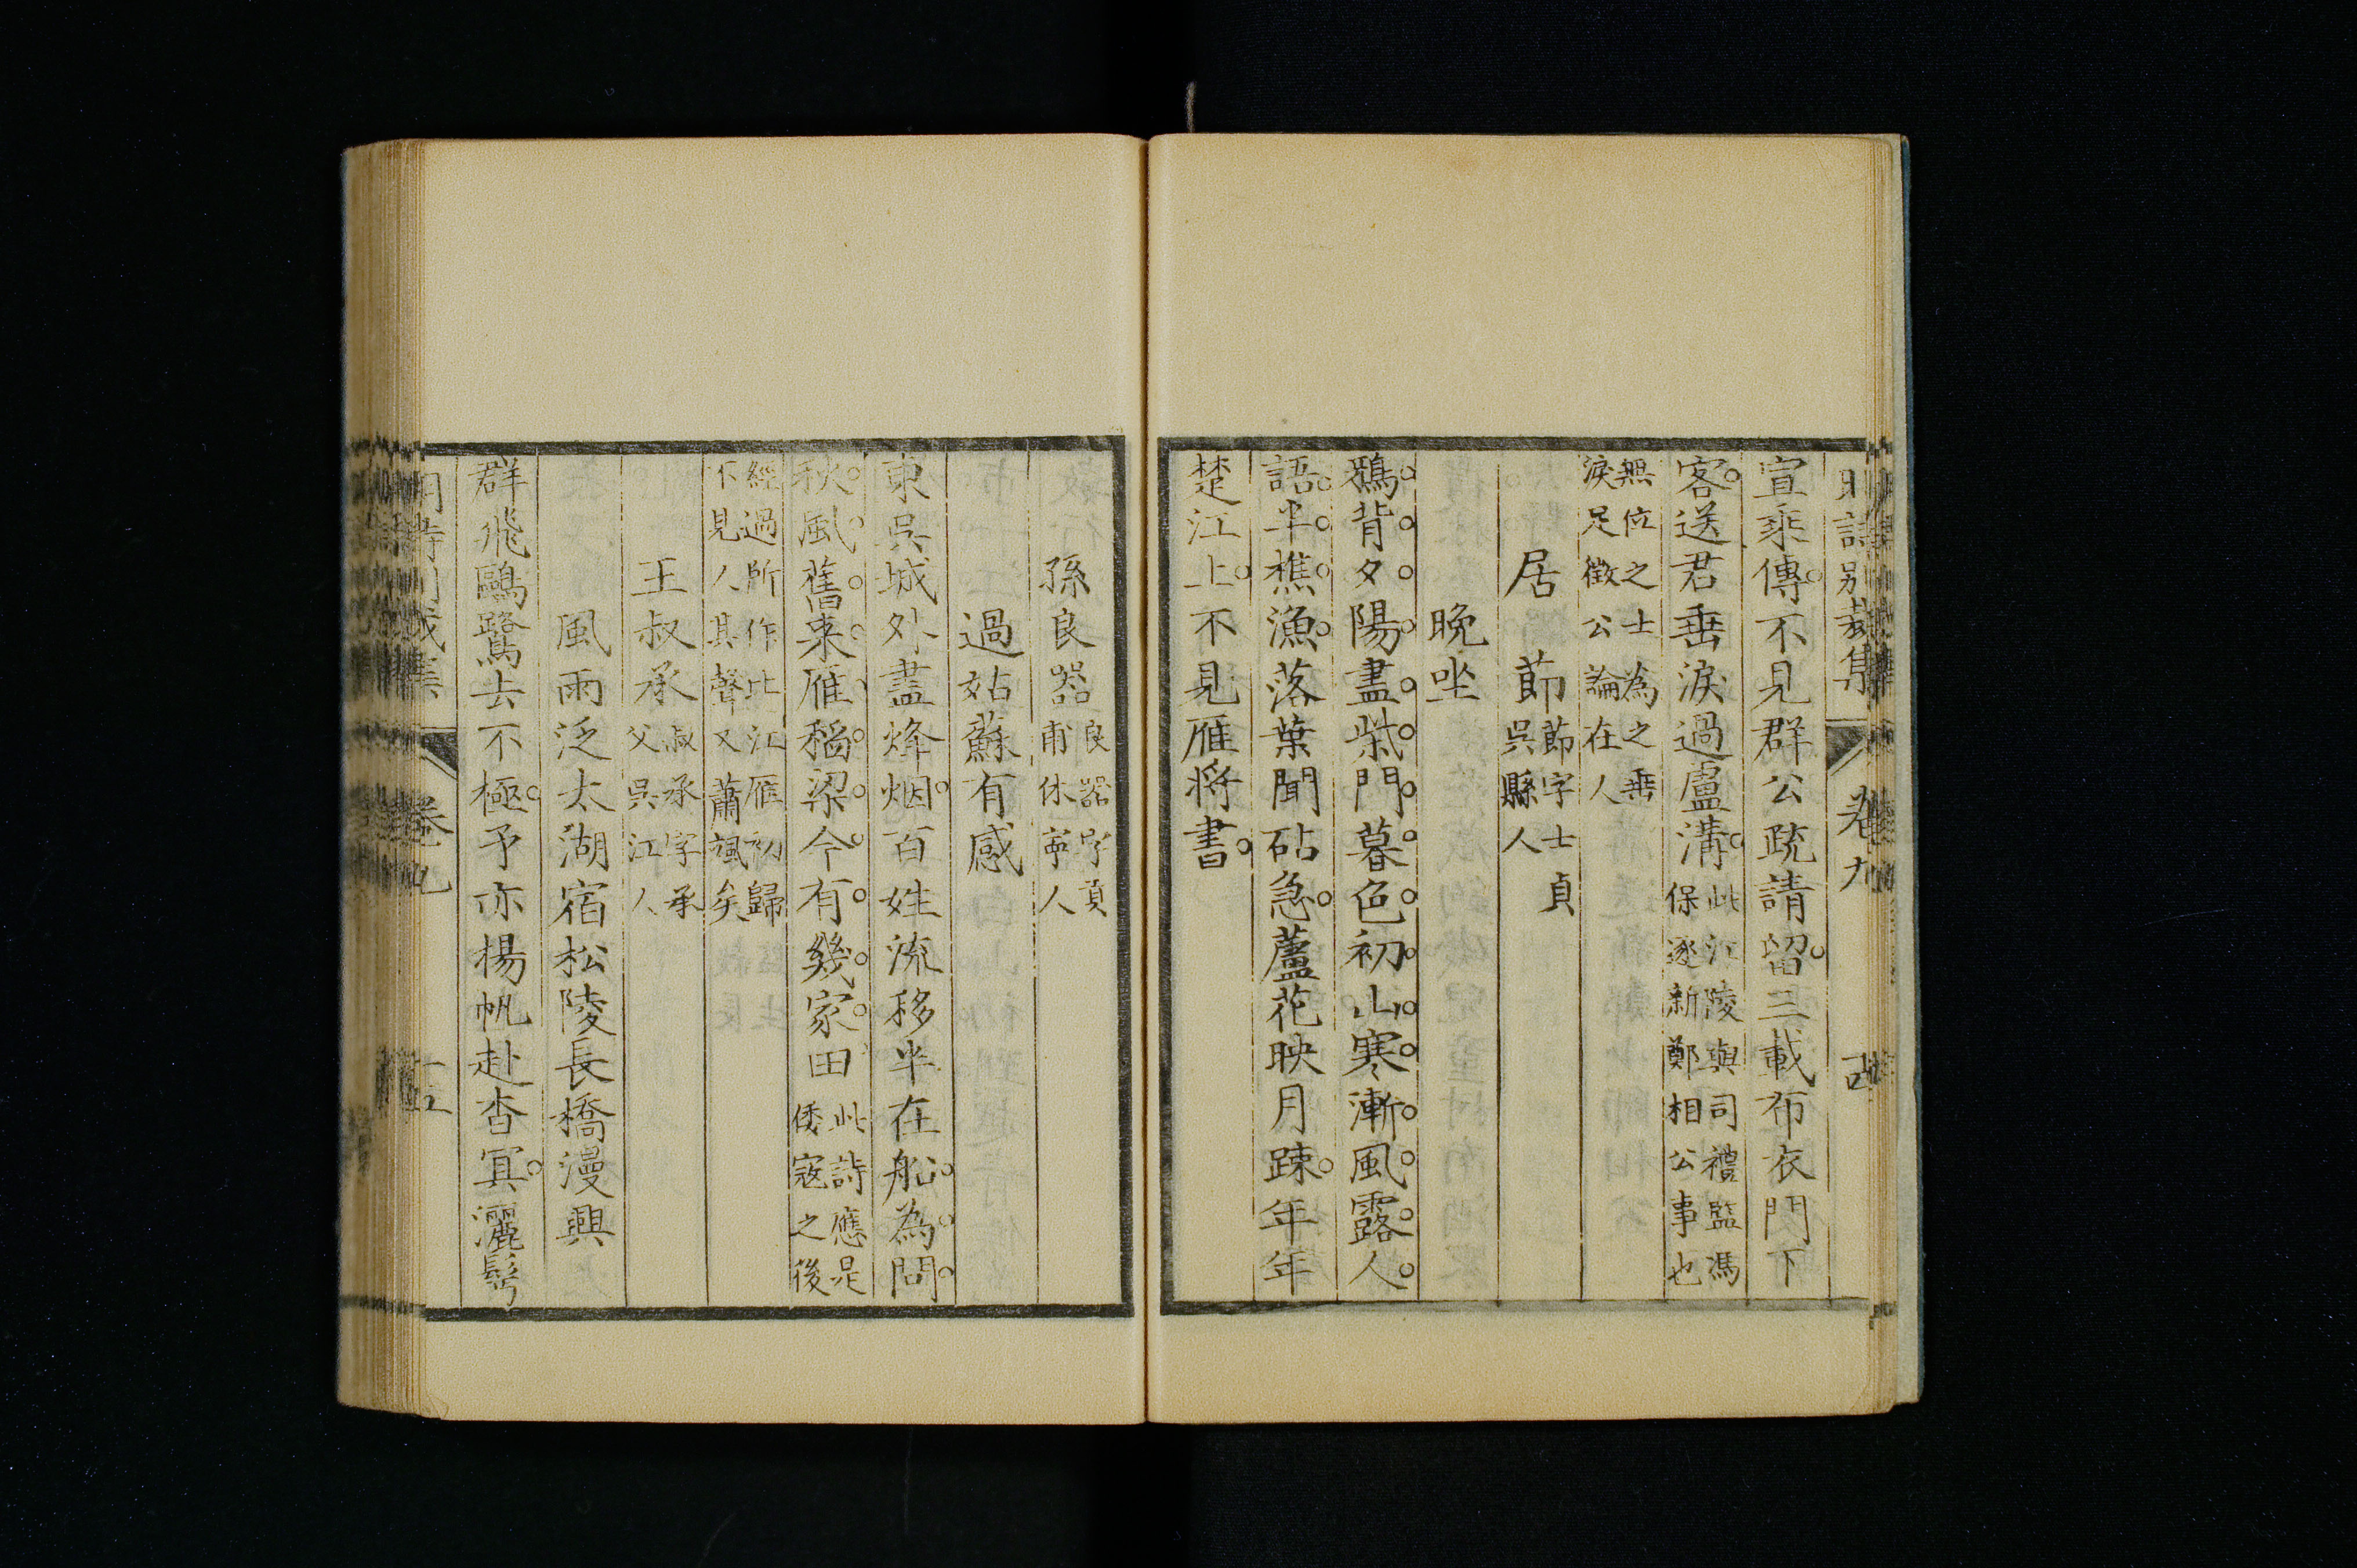 明詩別裁集 卷九 古
宣乘傳不見群公疏請留三載布衣門下
客送君垂淚過盧溝此江陵與司禮監馮
保逐新鄭相公事也
無位之士為之垂
淚足徵公論在人
居節節字士貞
吳縣人
晚坐
鴉背夕陽盡柴門暮色初山寒漸風露人
語半樵漁落葉聞砧急蘆花映月疎年年
楚江上不見雁將書
孫良器良器字貢
甫休寧人
過姑蘇有感
東吳城外盡烽烟百姓流移半在船為問
秋風舊来雁稻粱今有幾家田此詩應是
倭寇之後
經過所作比江雁初歸
不見人其聲又蕭颯矣
王叔承叔承字承
父吳江人
風雨泛太湖宿松陵長橋漫興
群飛鷗鷺去不極予亦揚帆赴杳冥灑髩
卷九 十五